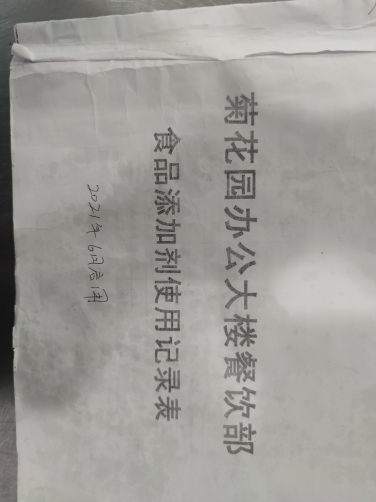 菊花园办公大楼餐饮部
食品添加剂使用记录表
2021年6月启用